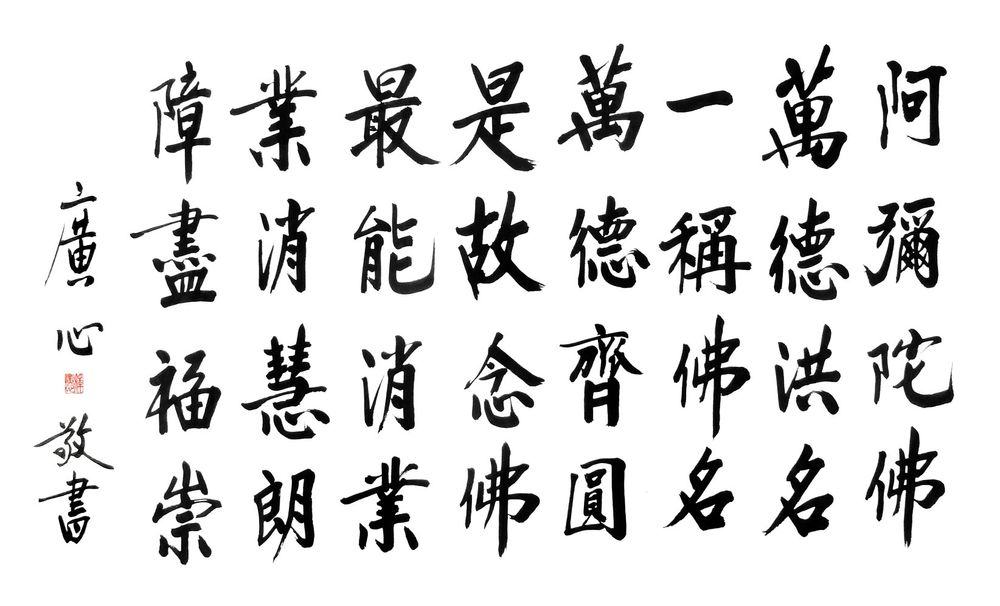 阿彌陀佛
萬德洪名
一稱佛名
萬德齊圓
是故念佛
最能消業
業消慧朗
障盡福崇
廣心敬書